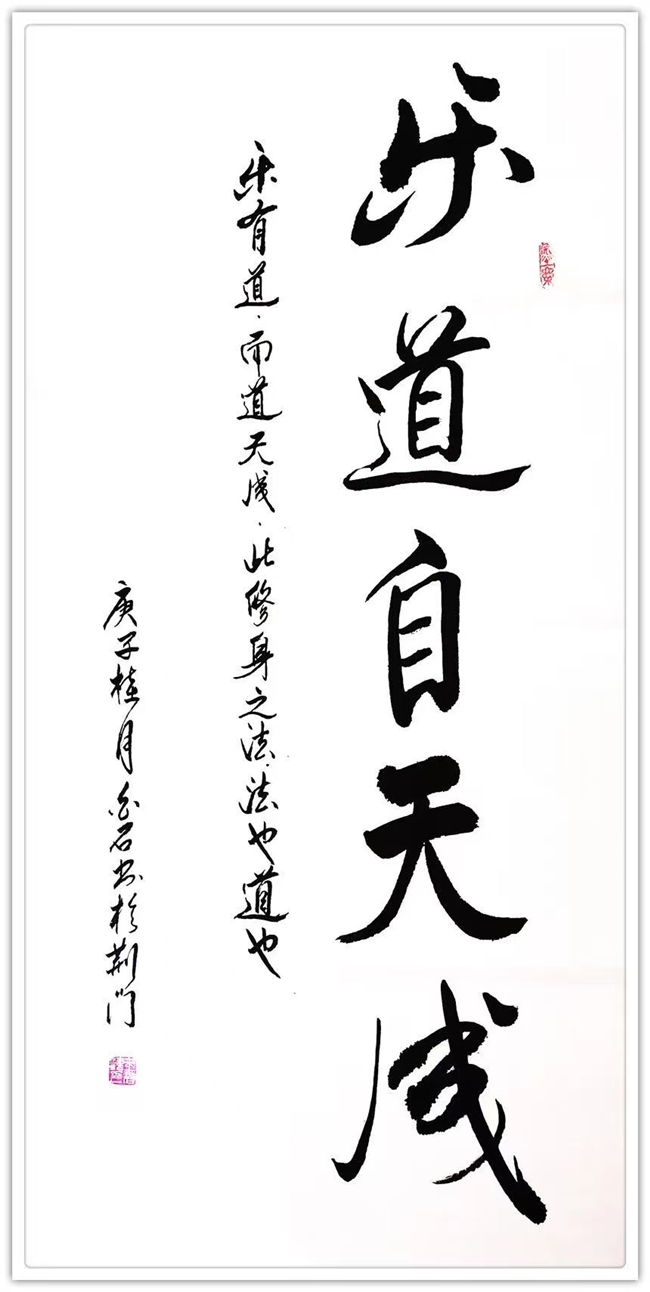 乐道自天成
乐有道·而道天成·此修身之法·法也道也
庚子桂月 石书於荆门